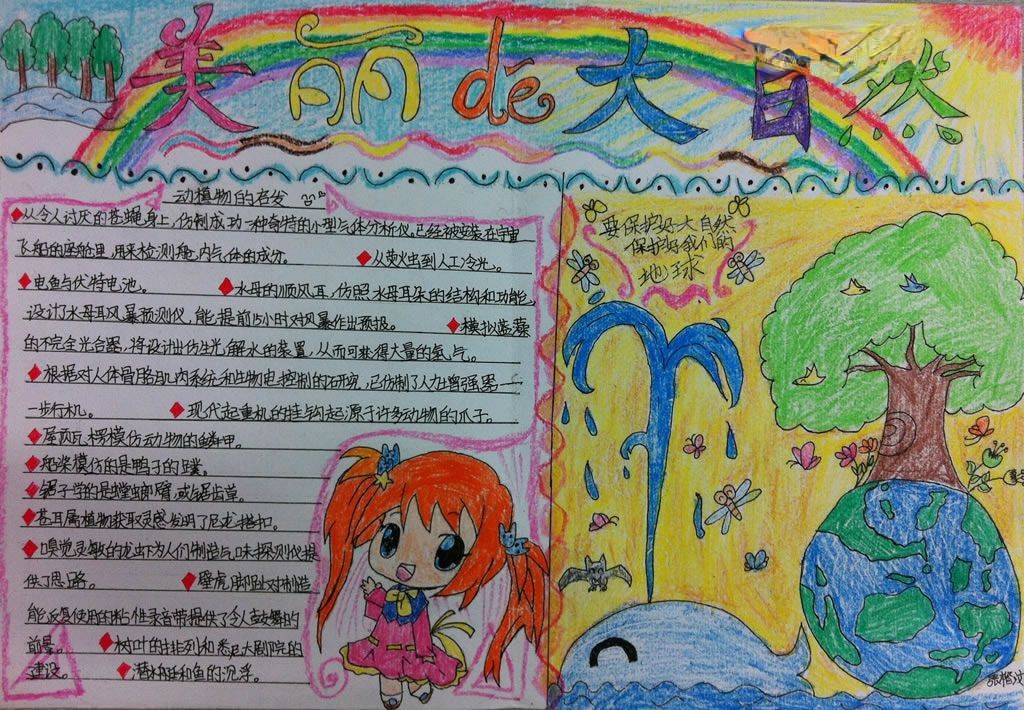 美丽de大自然
动植物的启发
从令人讨厌的苍蝇身上,仿制成功一种奇特的小型气体分析仪。已经被安装在宇宙
飞船的座舱里,用来检测舱内气体的成分。 从萤火虫到人工冷光。
电鱼与伏特电池。 水母的顺风耳,仿照水母耳朵的结构和功能,
设计了水母耳风暴预测仪,能提前15小时对风暴作出预报。 模拟蓝藻
的不完全光合器,将设计出仿生光解水的装置,从而可获得大量的氢气。
根据对人体骨胳肌肉系统和生物电控制的研究,已仿制了人力增强器——
一步行机。 现代起重机的挂钩起源于许多动物的爪子。
屋顶瓦楞模仿动物的鳞甲。
船桨模仿的是鸭子的蹼。
锯子学的是螳螂臂,或锯齿草。
苍耳属植物获取灵感发明了尼龙搭扣。
嗅觉灵敏的龙虾为人们制造气味探测仪提
供了思路。 壁虎脚趾对制造
能反复使用的粘性录音带提供了令人鼓舞的
前景。 树叶的排列和悉尼大剧院的
建设。 潜水艇和鱼的沉浮。
要保护好大自然
保护好我们的
地球